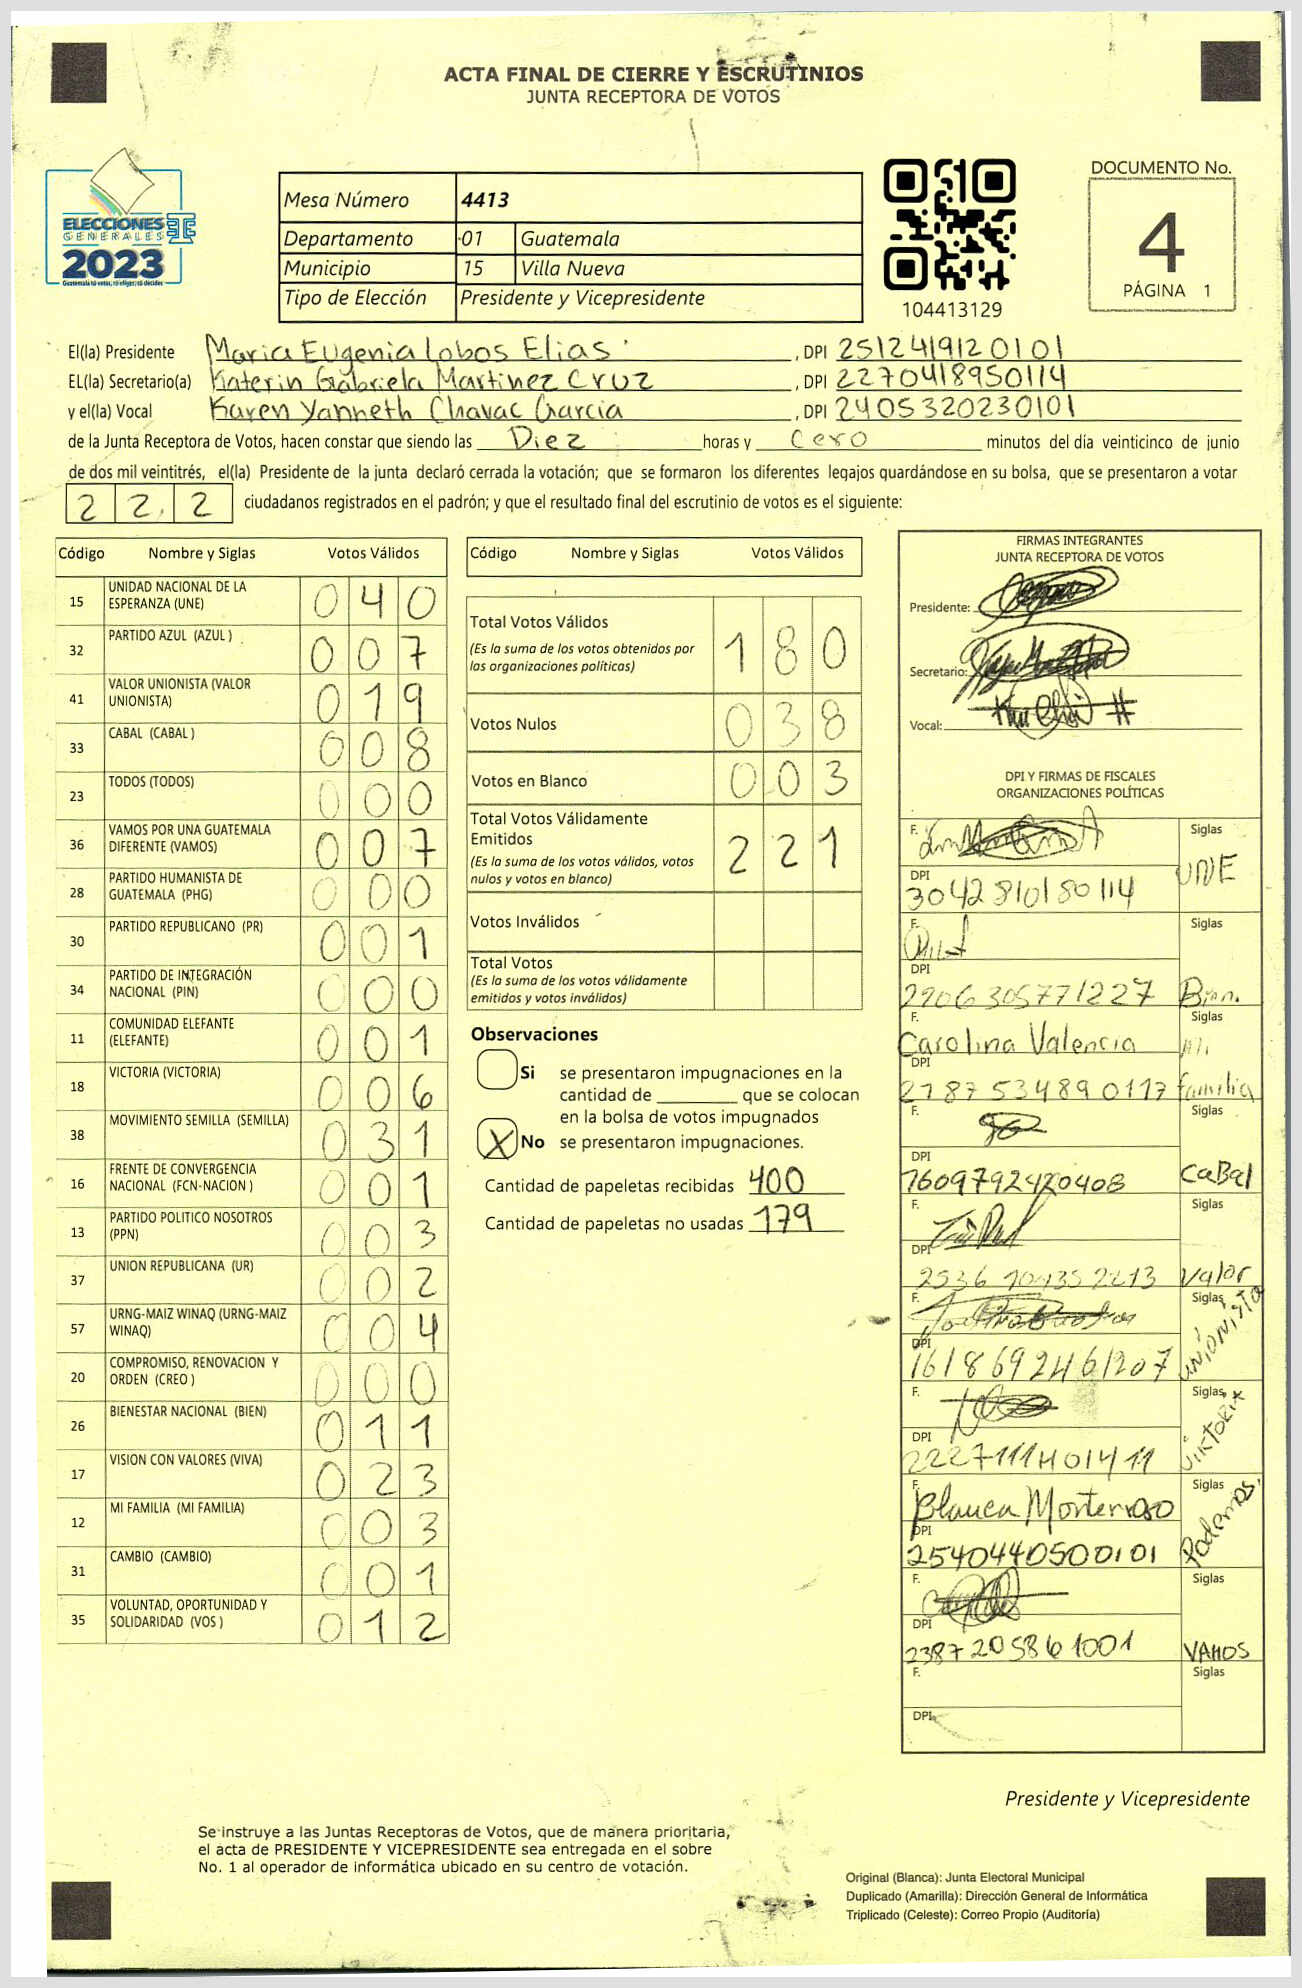 ACTA FINAL DE CIERRE Y ESCRUTINIOS
JUNTA RECEPTORA DE VOTOS
ELECCIONES
GENERALES
2023
Guatemala tú votas, tú eliges, tú decides
Mesa Número 4413
Departamento 01 Guatemala
Municipio 15 Villa Nueva
Tipo de Elección Presidente y Vicepresidente
104413129
DOCUMENTO No.
4
PÁGINA 1
El(la) Presidente Maria Eugenia Lobos Elias , DPI 2512419120101
EL(la) Secretario(a) Katerin Gabriela Martinez Cruz , DPI 2270418950114
y el(la) Vocal Karen Yanneth Chavac Garcia , DPI 2405320230101
de la Junta Receptora de Votos, hacen constar que siendo las Diez horas y cero minutos del día veinticinco de junio
de dos mil veintitrés, el(la) Presidente de la junta declaró cerrada la votación; que se formaron los diferentes legajos quardándose en su bolsa, que se presentaron a votar
2 2 2 ciudadanos registrados en el padrón; y que el resultado final del escrutinio de votos es el siguiente:
Código Nombre y Siglas Votos Válidos
15 UNIDAD NACIONAL DE LA ESPERANZA (UNE) 0 4 0
32 PARTIDO AZUL (AZUL ) 0 0 7
41 VALOR UNIONISTA (VALOR UNIONISTA) 0 1 9
33 CABAL (CABAL ) 0 0 8
23 TODOS (TODOS) 0 0 0
36 VAMOS POR UNA GUATEMALA DIFERENTE (VAMOS) 0 0 7
28 PARTIDO HUMANISTA DE GUATEMALA (PHG) 0 0 0
30 PARTIDO REPUBLICANO (PR) 0 0 1
34 PARTIDO DE INTEGRACIÓN NACIONAL (PIN) 0 0 0
11 COMUNIDAD ELEFANTE (ELEFANTE) 0 0 1
18 VICTORIA (VICTORIA) 0 0 6
38 MOVIMIENTO SEMILLA (SEMILLA) 0 3 1
16 FRENTE DE CONVERGENCIA NACIONAL (FCN-NACION ) 0 0 1
13 PARTIDO POLITICO NOSOTROS (PPN) 0 0 3
37 UNION REPUBLICANA (UR) 0 0 2
57 URNG-MAIZ WINAQ (URNG-MAIZ WINAQ) 0 0 4
20 COMPROMISO, RENOVACION Y ORDEN (CREO ) 0 0 0
26 BIENESTAR NACIONAL (BIEN) 0 1 1
17 VISION CON VALORES (VIVA) 0 2 3
12 MI FAMILIA (MI FAMILIA) 0 0 3
31 CAMBIO (CAMBIO) 0 0 1
35 VOLUNTAD, OPORTUNIDAD Y SOLIDARIDAD (VOS ) 0 1 2
Código Nombre y Siglas Votos Válidos
Total Votos Válidos 1 8 0
(Es la suma de los votos obtenidos por
las organizaciones políticas)
Votos Nulos 0 3 8
Votos en Blanco 0 0 3
Total Votos Válidamente
Emitidos 2 2 1
(Es la suma de los votos válidos, votos
nulos y votos en blanco)
Votos Inválidos
Total Votos
(Es la suma de los votos válidamente
emitidos y votos inválidos)
Observaciones
Si se presentaron impugnaciones en la
cantidad de ________ que se colocan
en la bolsa de votos impugnados
X No se presentaron impugnaciones.
Cantidad de papeletas recibidas 400
Cantidad de papeletas no usadas 179
FIRMAS INTEGRANTES
JUNTA RECEPTORA DE VOTOS
Presidente:
Secretario:
Vocal:
DPI Y FIRMAS DE FISCALES
ORGANIZACIONES POLÍTICAS
F. Siglas
UNE
DPI
3042810180114
F. Siglas
DPI
2906305771227
F. Siglas
Carolina Valencia
DPI
2787534890117 familia
F. Siglas
DPI
1609792420408 CaBal
F. Siglas
DPI
Valor
F. Siglas
DPI
1618692461207 UNIONISTA
F. Siglas
DPI
2227111401411 viktoria
F. Siglas
Blanca Monterroso
DPI
2540440500101 Podemos
F. Siglas
DPI
2387205861001 VAMOS
F. Siglas
DPI
Presidente y Vicepresidente
Se instruye a las Juntas Receptoras de Votos, que de manera prioritaria,
el acta de PRESIDENTE Y VICEPRESIDENTE sea entregada en el sobre
No. 1 al operador de informática ubicado en su centro de votación.
Original (Blanca): Junta Electoral Municipal
Duplicado (Amarilla): Dirección General de Informática
Triplicado (Celeste): Correo Propio (Auditoría)